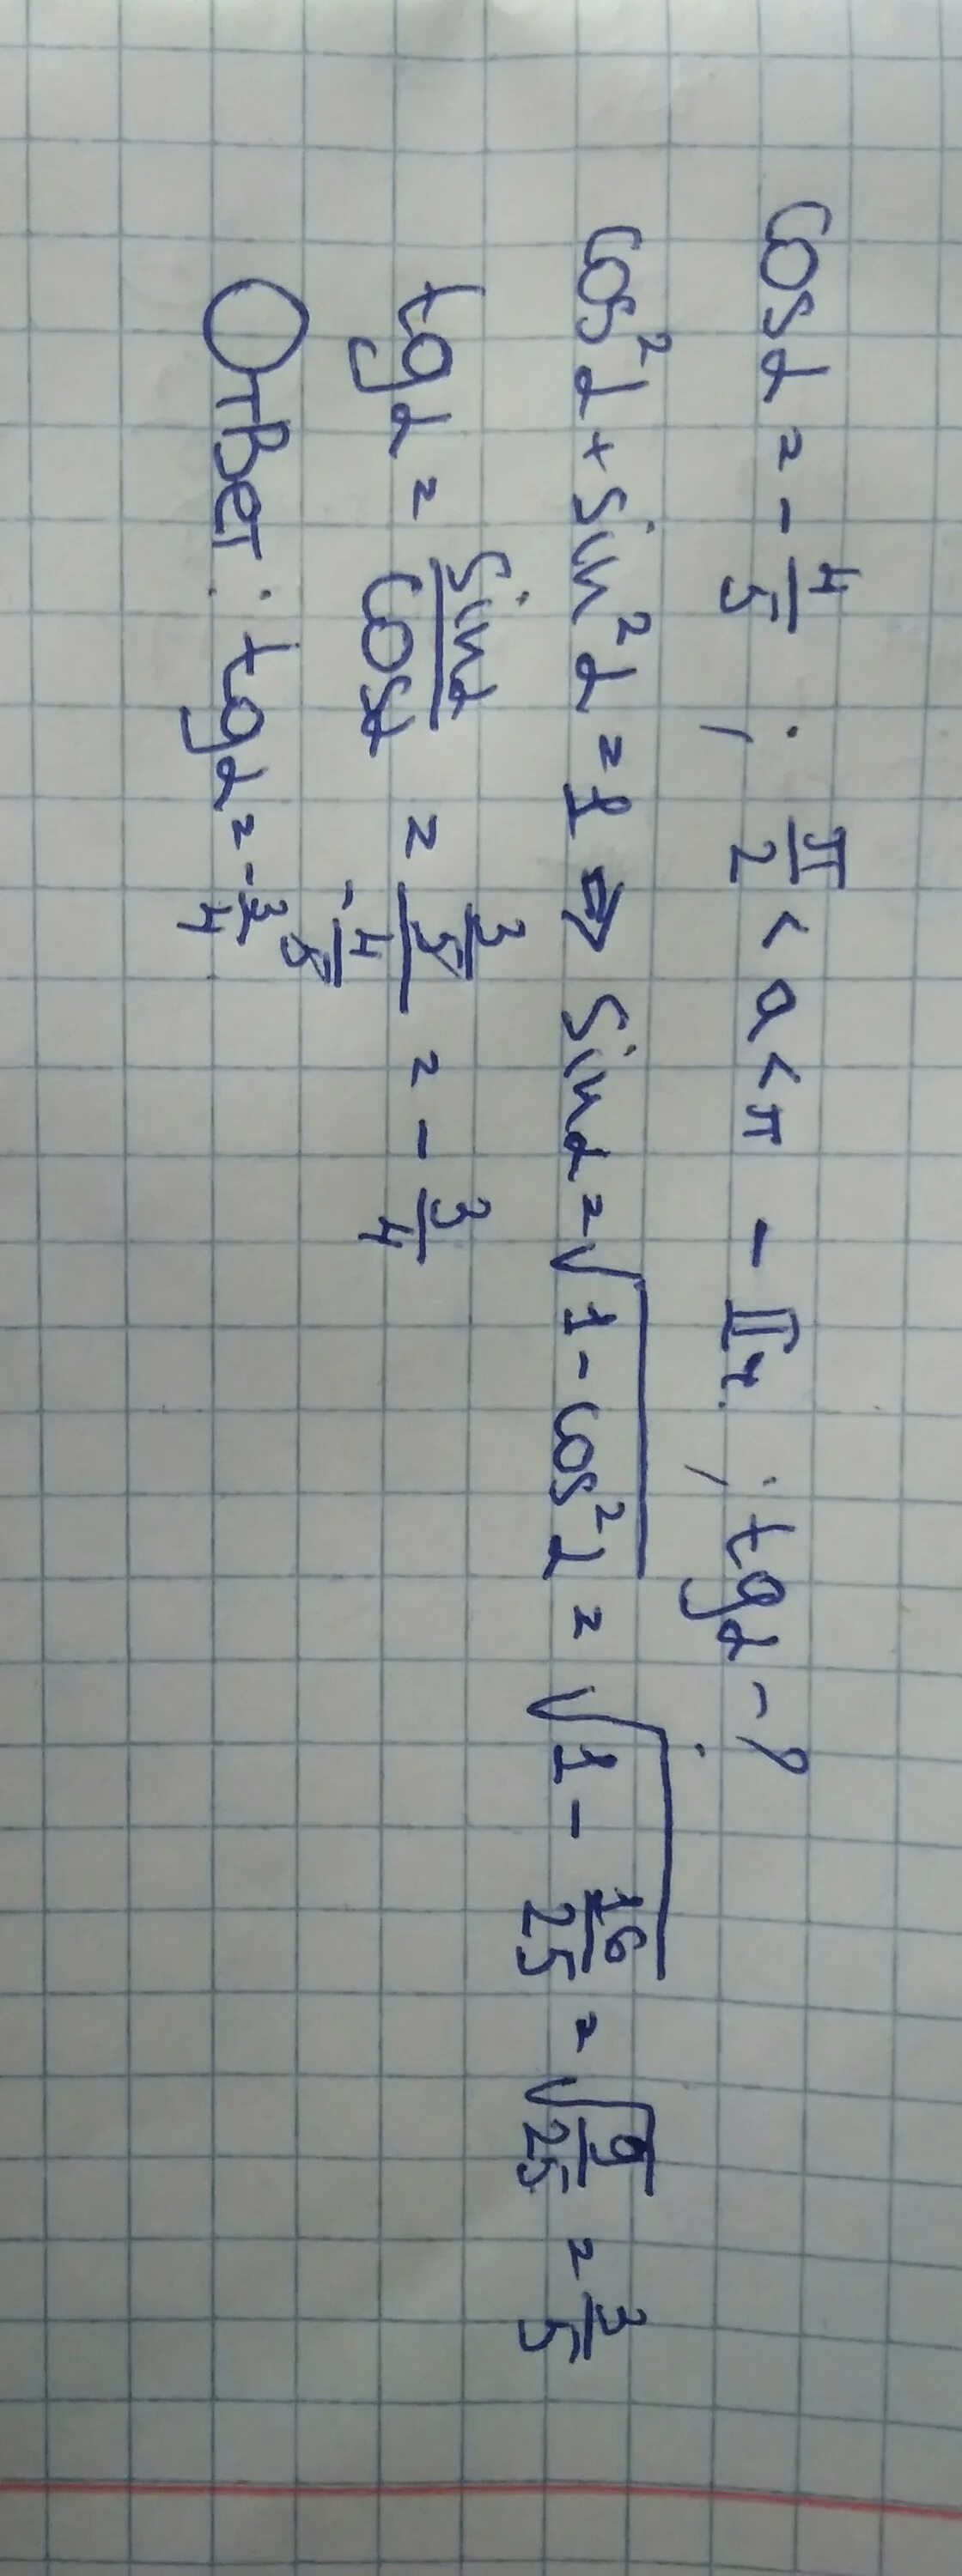 cos α = - 4/5 ; π/2 < a < π - II ч. ; tg α - ?
cos² α + sin² α = 1 ⇒ sin α = √(1 - cos² α) = √(1 - 16/25) = √(9/25) = 3/5
tg α = sin α / cos α = (3/5) / (- 4/5) = - 3/4
Ответ: tg α = - 3/4